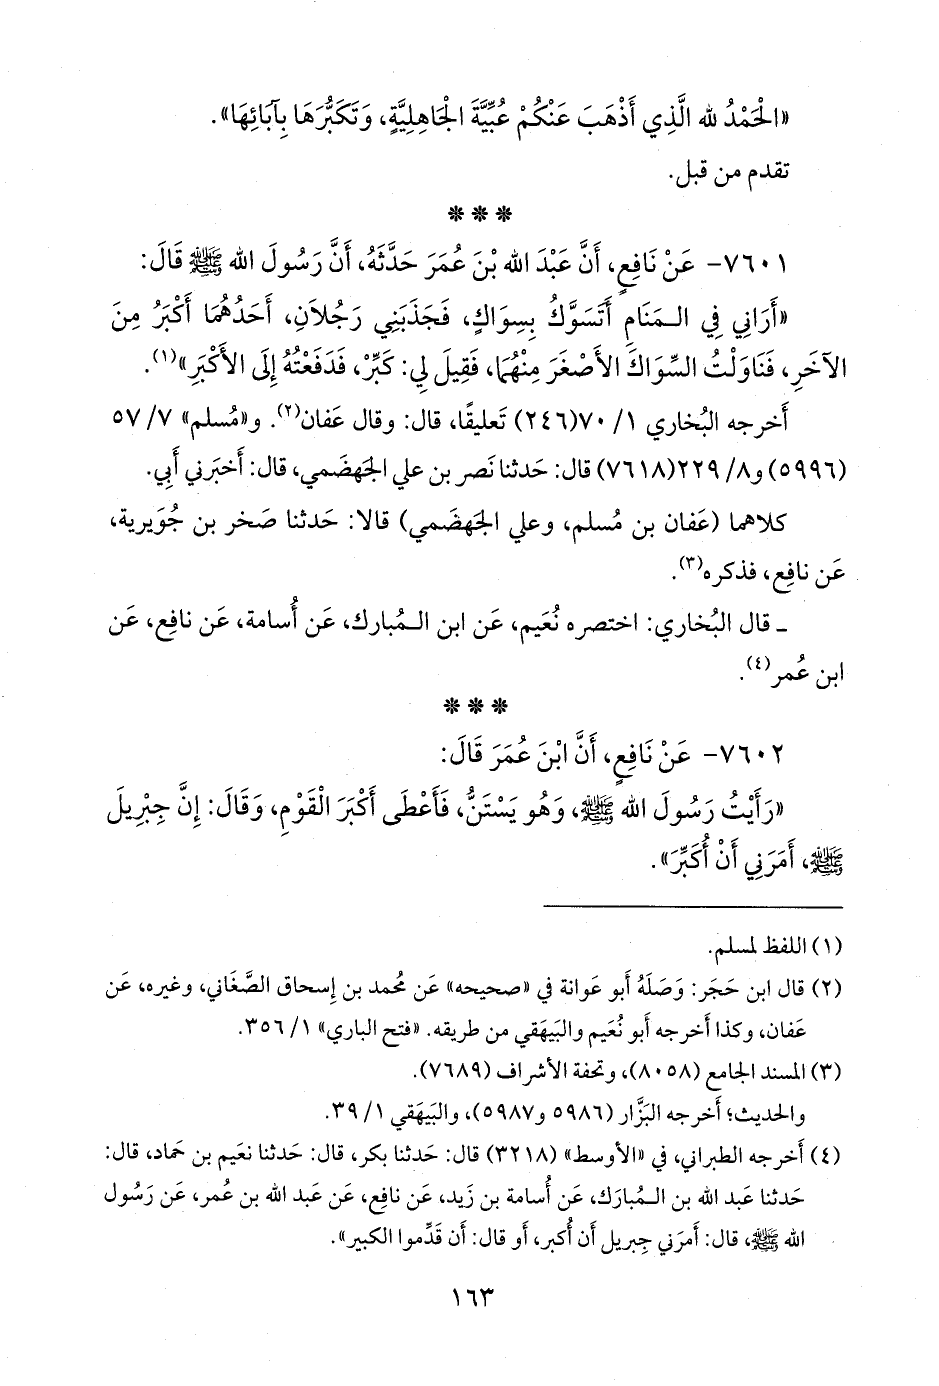 «الْحَمْدُ لله الَّذِي أَذْهَبَ عَنْكُمْ عُبِّيَّةَ الْجَاهِلِيَّةِ، وَتَكَبُّرَهَا بِآبَائِهَا».
تقدم من قبل.
* * *
٧٦٠١- عَنْ نَافِعٍ، أَنَّ عَبْدَ الله بْنَ عُمَرَ حَدَّثَهُ، أَنَّ رَسُولَ الله ﷺ قَالَ:
«أَرَانِي فِي الـمَنَامِ أَتَسَوَّكُ بِسِوَاكٍ، فَجَذَبَنِي رَجُلاَنِ، أَحَدُهُمَا أَكْبَرُ مِنَ
الآخَرِ، فَنَاوَلْتُ السِّوَاكَ الأَصْغَرَ مِنْهُمَا، فَقِيلَ لِي: كَبِّرْ، فَدَفَعْتُهُ إِلَى الأَكْبَرِ»(١).
أَخرجه البُخاري ١/ ٧٠(٢٤٦) تَعليقًا، قال: وقال عَفان(٢). و«مُسلم» ٧/ ٥٧
(٥٩٩٦) و٨/ ٢٢٩(٧٦١٨) قال: حَدثنا نَصر بن علي الجَهضَمي، قال: أَخبَرني أَبي.
كلاهما (عَفان بن مُسلم، وعلي الجَهضَمي) قالا: حَدثنا صَخر بن جُوَيرية،
عَن نافِع، فذكره(٣).
ـ قال البُخاري: اختصره نُعَيم، عَن ابن الـمُبارك، عَن أُسامة، عَن نافِع، عَن
ابن عُمر(٤).
* * *
٧٦٠٢- عَنْ نَافِعٍ، أَنَّ ابْنَ عُمَرَ قَالَ:
«رَأَيْتُ رَسُولَ الله ﷺ، وَهُو يَسْتَنُّ، فَأَعْطَى أَكْبَرَ الْقَوْمِ، وَقَالَ: إِنَّ جِبْرِيلَ
ﷺ، أَمَرَنِي أَنْ أُكَبِّرَ».
(١) اللفظ لمسلم.
(٢) قال ابن حَجَر: وَصَلَهُ أَبو عَوانة في «صحيحه» عَن مُحمد بن إِسحاق الصَّغَاني، وغيره، عَن
عَفان، وكذا أَخرجه أَبو نُعَيم والبَيهَقي من طريقه. «فتح الباري» ١/ ٣٥٦.
(٣) المسند الجامع (٨٠٥٨)، وتحفة الأشراف (٧٦٨٩).
والحديث؛ أَخرجه البَزَّار (٥٩٨٦ و٥٩٨٧)، والبَيهَقي ١/ ٣٩.
(٤) أَخرجه الطبراني، في «الأَوسط» (٣٢١٨) قال: حَدثنا بكر، قال: حَدثنا نعَيم بن حَماد، قال:
حَدثنا عَبد الله بن الـمُبارك، عَن أُسامة بن زَيد، عَن نافِع، عَن عَبد الله بن عُمر، عَن رَسُول
الله ﷺ، قال: أَمرَني جِبريل أَن أُكبر، أَو قال: أَن قَدِّموا الكبير».
١٦٣